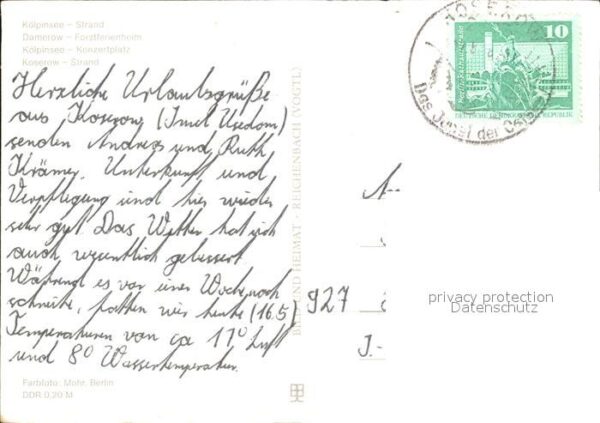 Kölpinsee – Strand
Damerow – Forstferienheim
Kölpinsee – Konzertplatz
Koserow – Strand
Herzliche Urlaubsgrüße
aus Koserow (Insel Usedom)
senden Andreas und Ruth
Krämer. Unterkunft und
Verpflegung sind hier wieder
sehr gut. Das Wetter hat sich
auch wesentlich gebessert
Während es vor einer Woche noch
schneite, hatten wir heute (16.5)
Temperaturen von ca 11° Luft
und 8° Wassertemperatur.
Farbfoto: Mohr, Berlin
DDR 0,20 M
BILD UND HEIMAT · REICHENBACH (VOGTL)
KOSEROW
Das Juwel der Ostsee
10
DEUTSCHE DEMOKRATISCHE REPUBLIK
927
J.-
privacy protection
Datenschutz